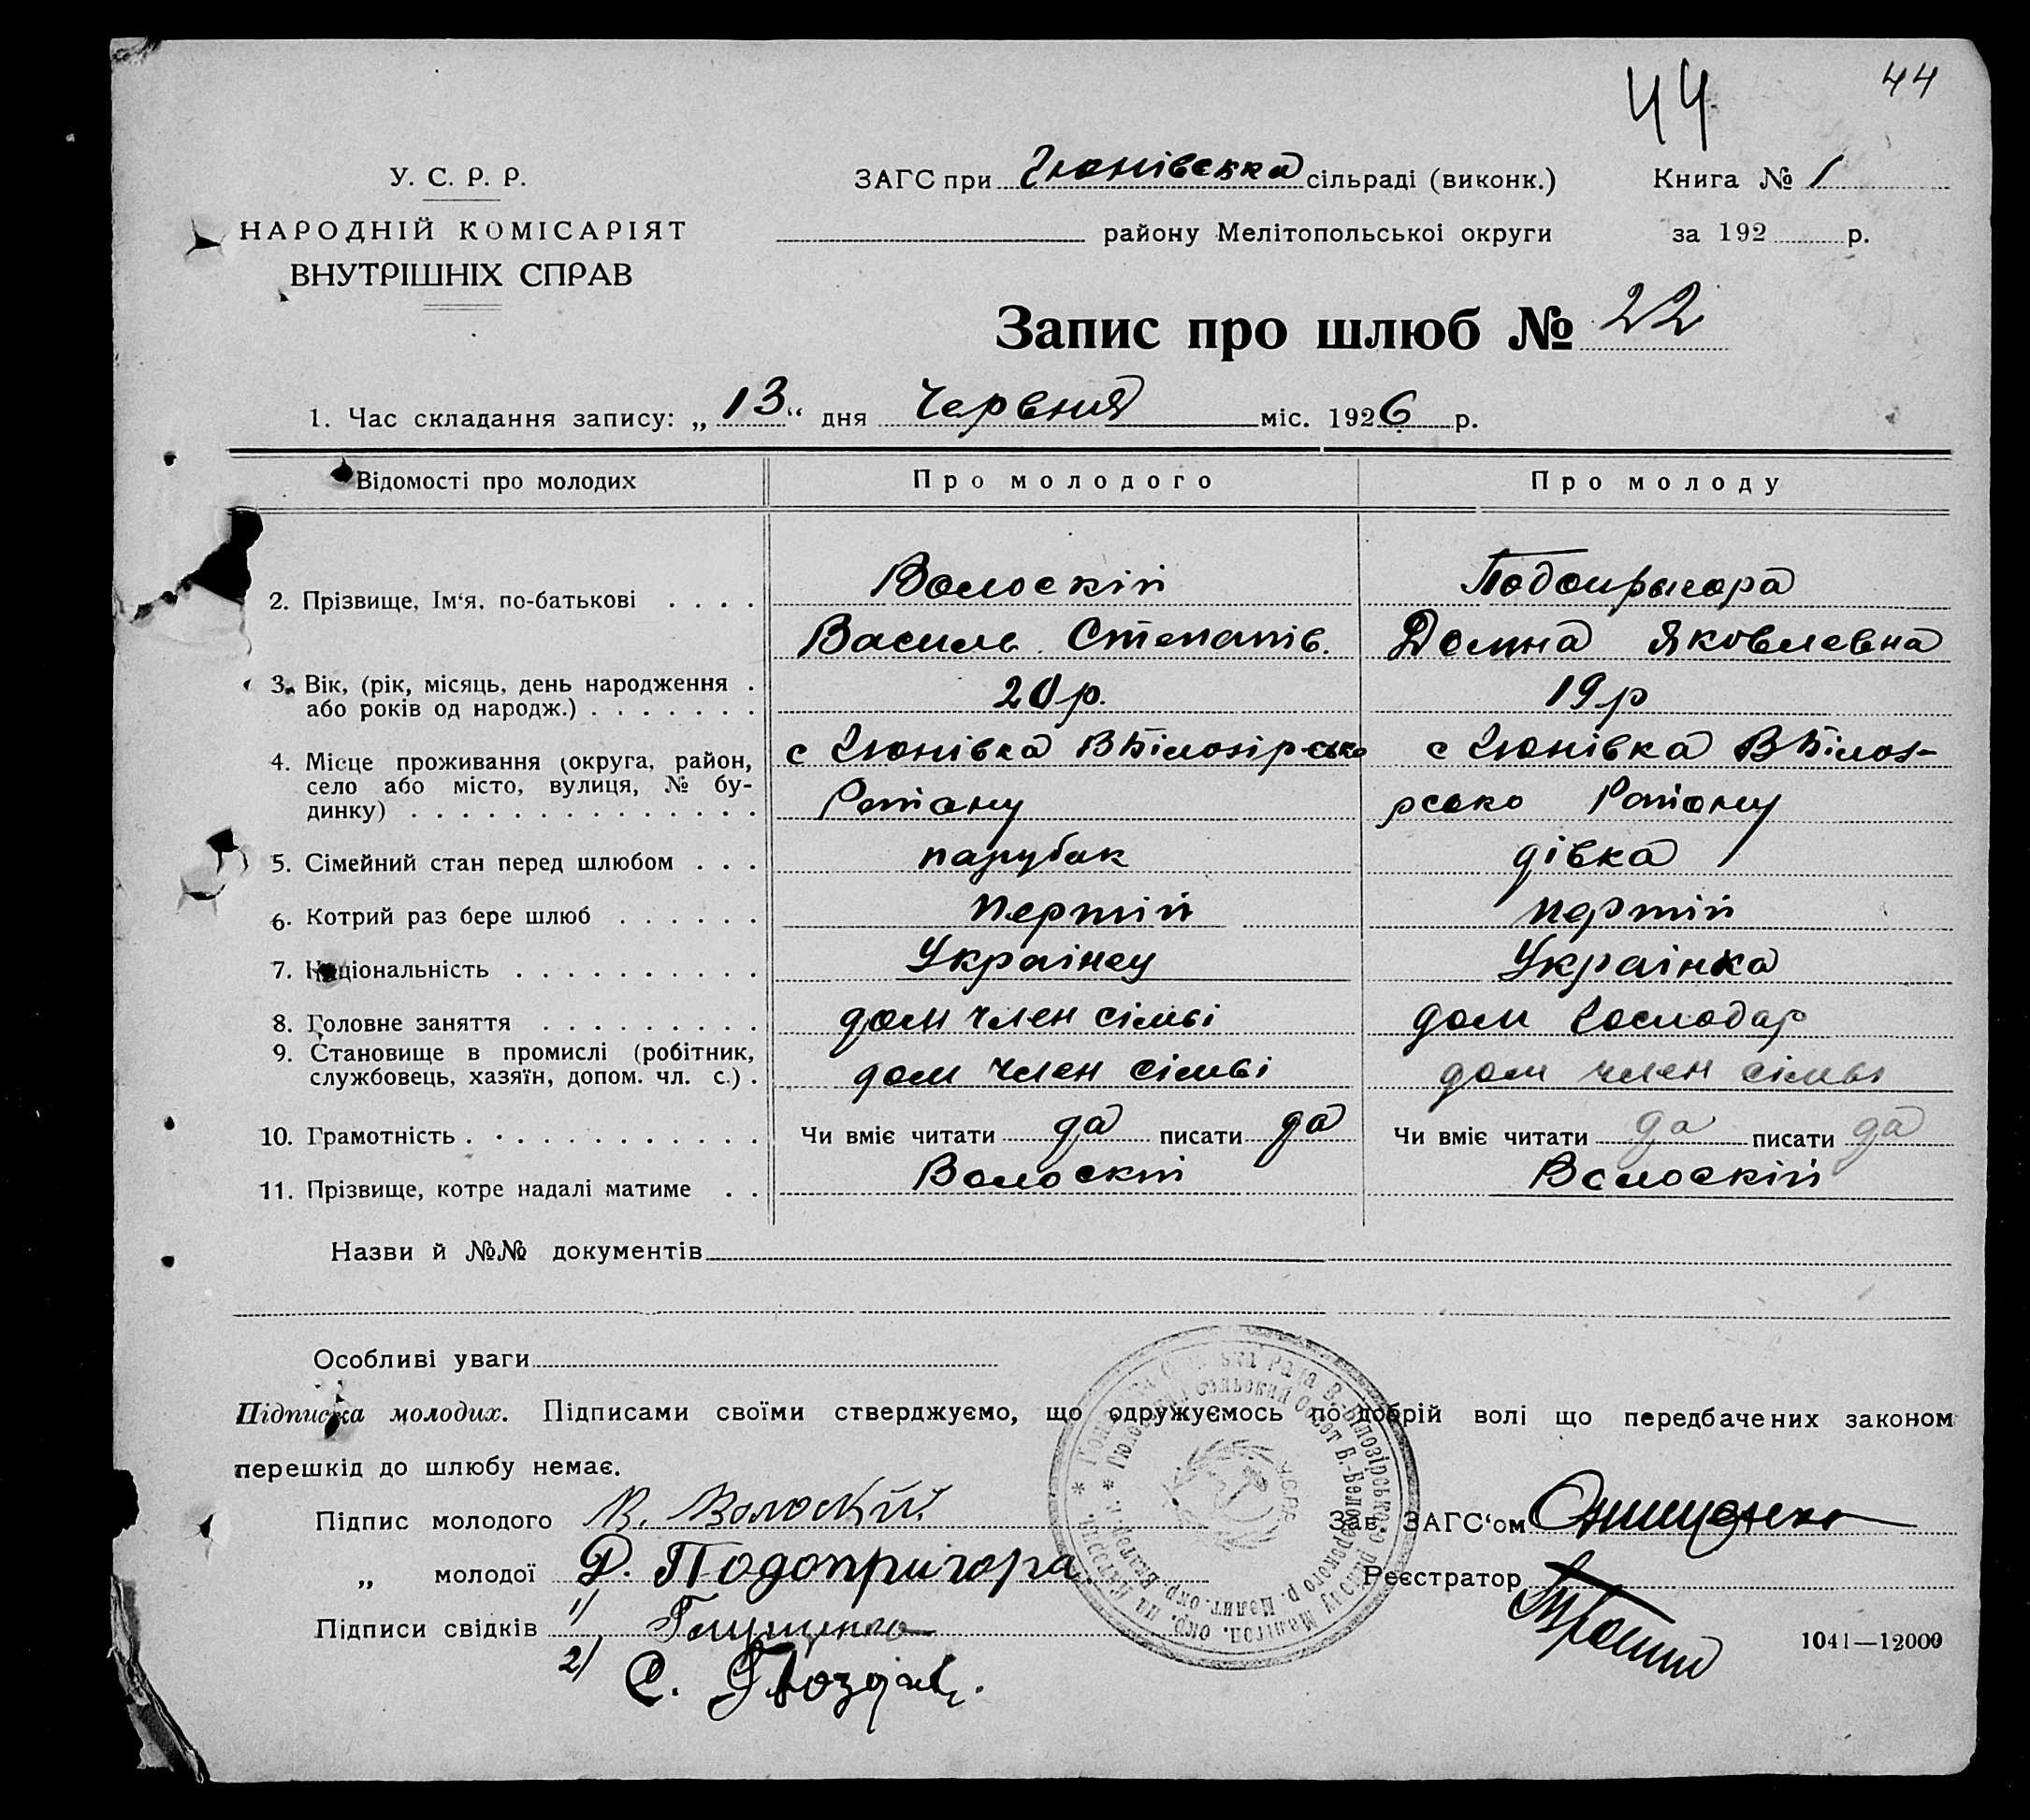 44
44
У. С. Р. Р.
НАРОДНІЙ КОМІСАРІЯТ
ВНУТРІШНІХ СПРАВ
ЗАГС при Гюнівська сільраді (виконк.)
району Мелітопольськоі округи
Книга № 1
за 192 р.
Запис про шлюб № 22
1. Час складання запису: „ 13 “ дня Червня міс. 1926 р.
Відомості про молодих
Про молодого
Про молоду
2. Прізвище, Ім‘я, по-батькові . . . .
Волоскій
Василь Степанів.
Подопрыгора
Домна Яковлевна
3. Вік, (рік, місяць, день народження .
або років од народж.) . . . . . . .
20р.
19р
4. Місце проживання (округа, район,
село або місто, вулиця, № бу-
динку) . . . . . . . . . . . . . .
с Гюнівка ВБілозірсько
Раіону
с Гюнівка ВБілоз-
рсько Раіону
5. Сімейний стан перед шлюбом . . .
парубак
дівка
6. Котрий раз бере шлюб . . . . . .
першій
першій
7. Національність . . . . . . . . . .
Украінец
Украінка
8. Головне заняття . . . . . . . . .
дом член сімьі
дом Господар
9. Становище в промислі (робітник,
службовець, хазяїн, допом. чл. с.) .
дом член сімьі
дом член сімьі
10. Грамотність . . . . . . . . . . . .
Чи вміє читати да писати да
Чи вміє читати да писати да
11. Прізвище, котре надалі матиме . .
Волоскій
Волоскій
Назви й №№ документів
Особливі уваги
Підписка молодих. Підписами своїми стверджуємо, що одружуємось по добрій волі що передбачених законом
перешкід до шлюбу немає.
Підпис молодого В. Волоский.
„ молодої Д. Подопригора.
Підписи свідків 1) Глущенко
2) С.
Зав. ЗАГС‘ом Онищенко
Реєстратор
1041—12000
У.С.Р.Р.